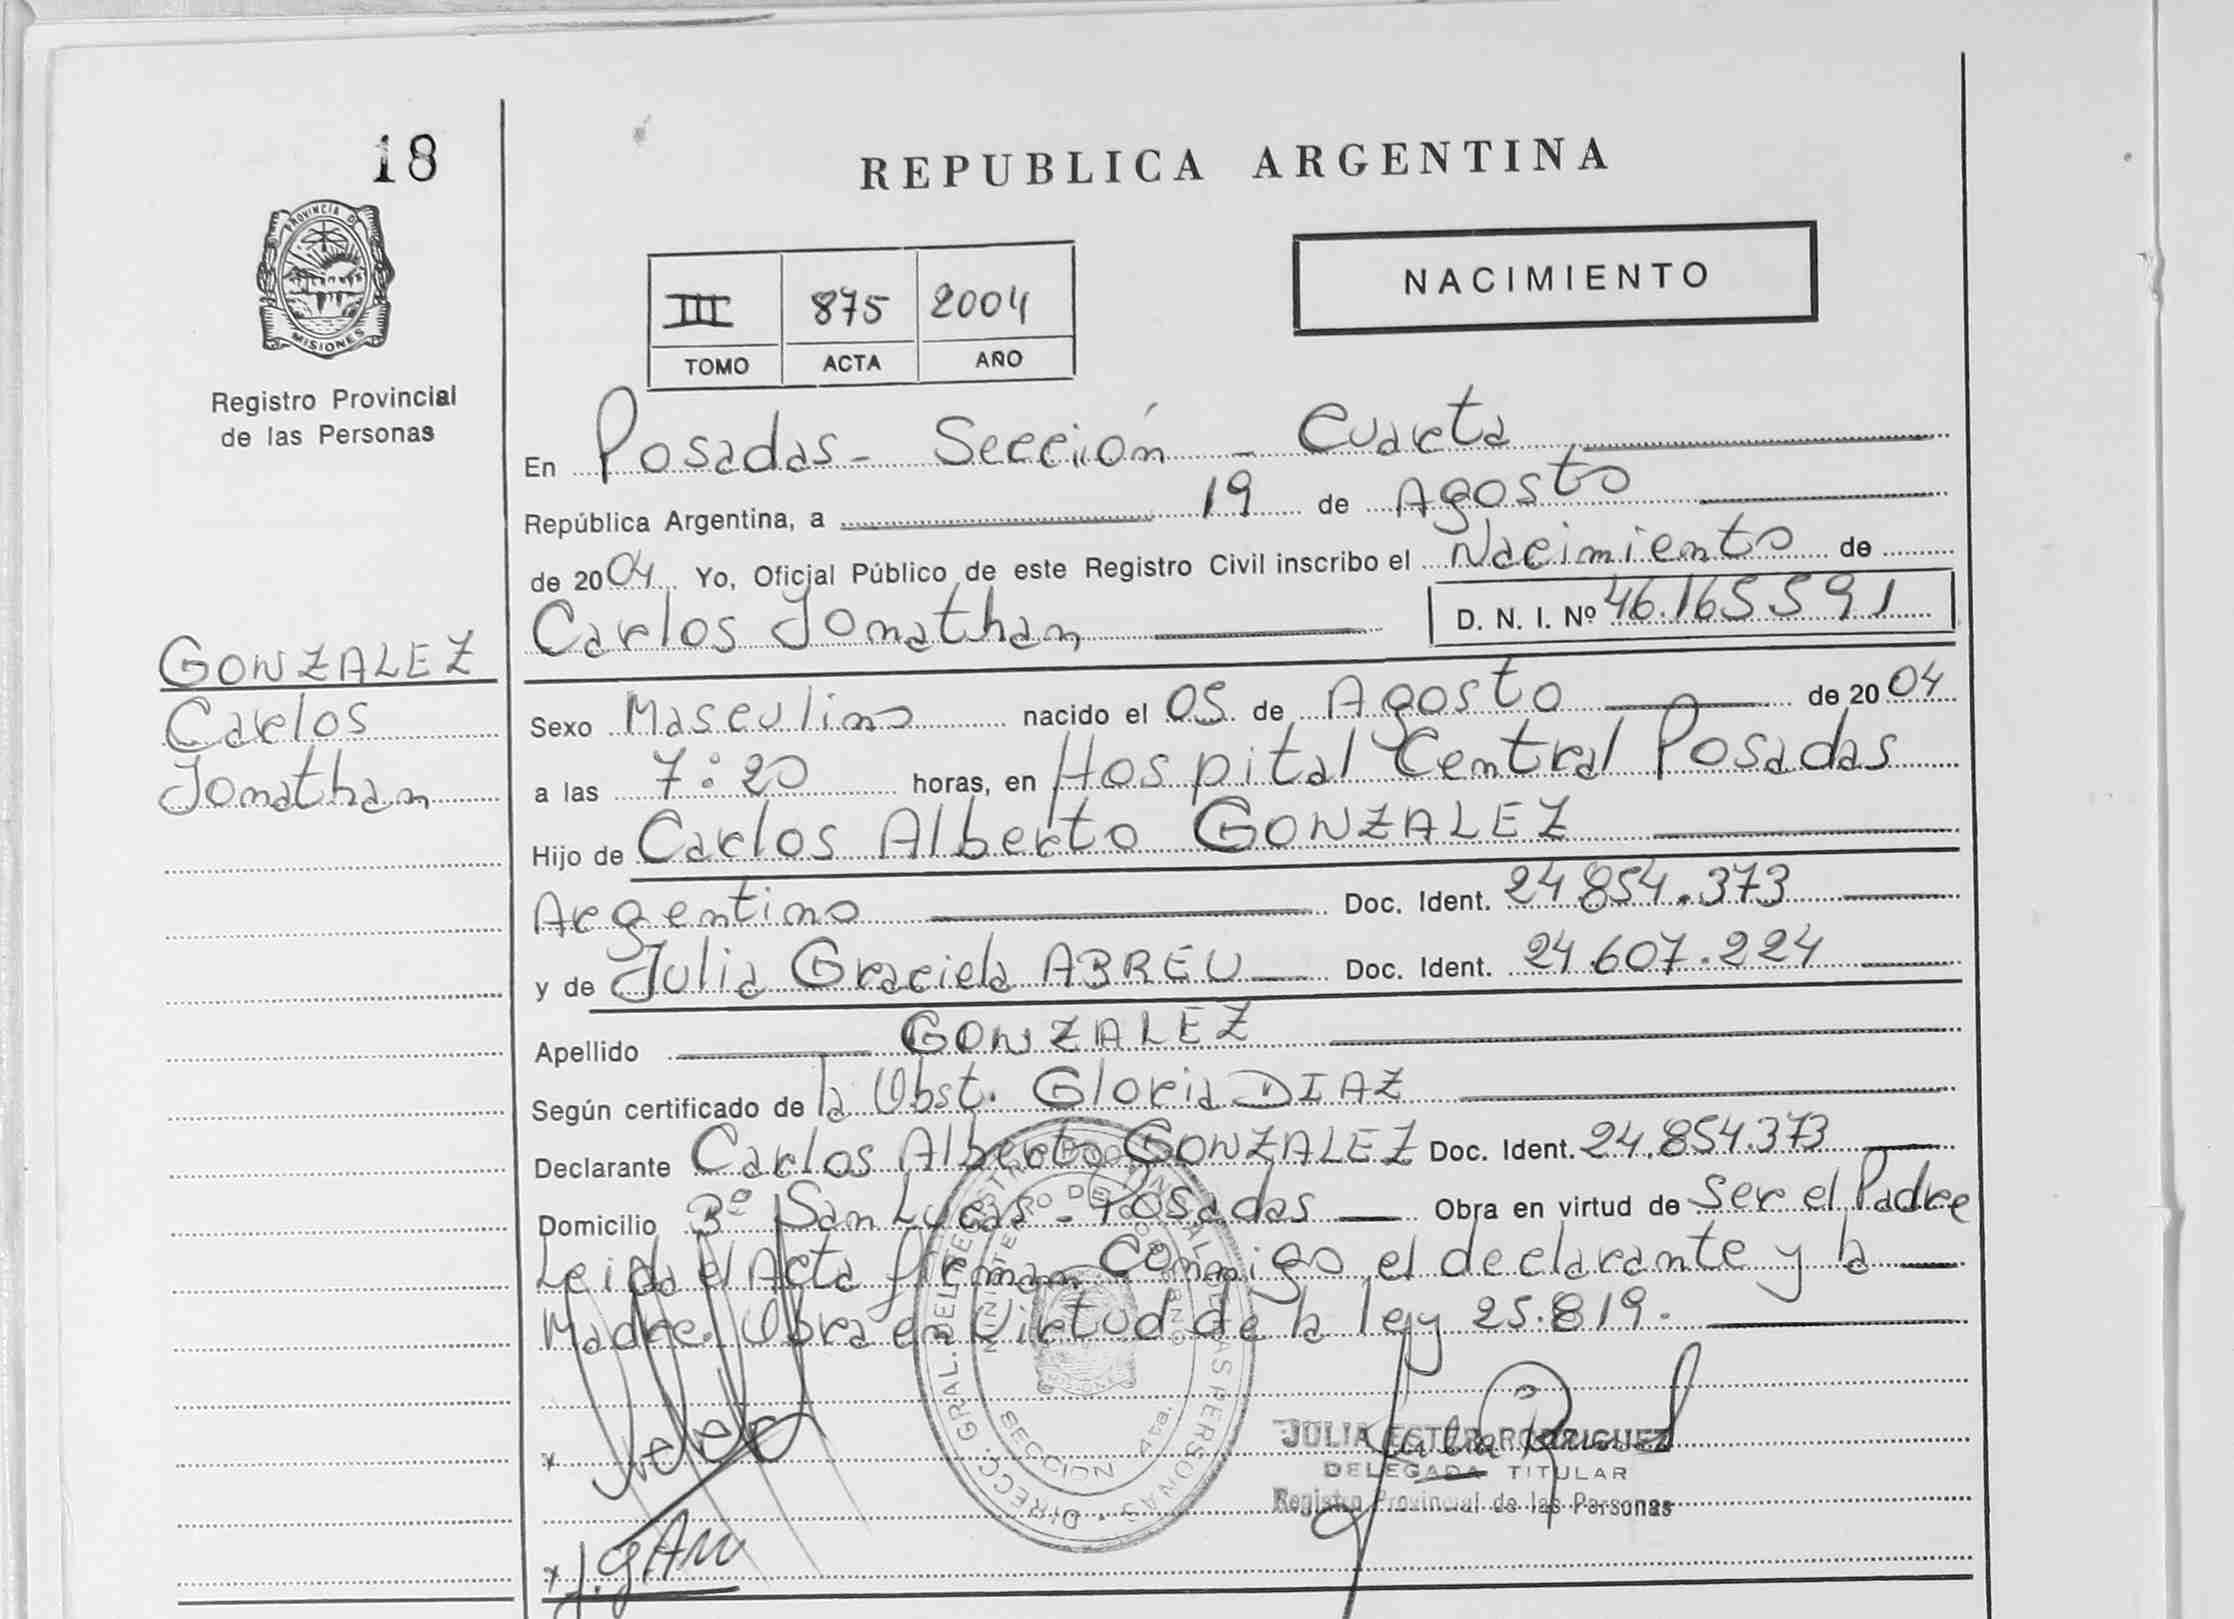 18
REPUBLICA ARGENTINA
PROVINCIA DE
MISIONES
Registro Provincial
de las Personas
III 875 2004
TOMO ACTA AÑO
NACIMIENTO
En Posadas - Sección - Cuarta
República Argentina, a 19 de Agosto
de 2004 Yo, Oficial Público de este Registro Civil inscribo el Nacimiento de
Carlos Jonathan D. N. I. Nº 46.165591
GONZALEZ
Carlos
Jonathan
Sexo Masculino nacido el 05 de Agosto de 2004
a las 7:20 horas, en Hospital Central Posadas
Hijo de Carlos Alberto GONZALEZ
Argentino Doc. Ident. 24854.373
y de Julia Graciela ABREU Doc. Ident. 24.607.224
Apellido GONZALEZ
Según certificado de la Obst. Gloria DIAZ
Declarante Carlos Alberto GONZALEZ Doc. Ident. 24.854.373
Domicilio Bº San Lucas - Posadas Obra en virtud de Ser el Padre
Leida el Acta firman Conmigo el declarante y la
Madre. Obra en Virtud de la ley 25.819.
DIRECC. GRAL. DEL REGISTRO PROVINCIAL DE LAS PERSONAS
MINISTERIO DE GOBIERNO
SECCION 4ta.
JULIA ESTER RODRIGUEZ
DELEGADA TITULAR
Registro Provincial de las Personas